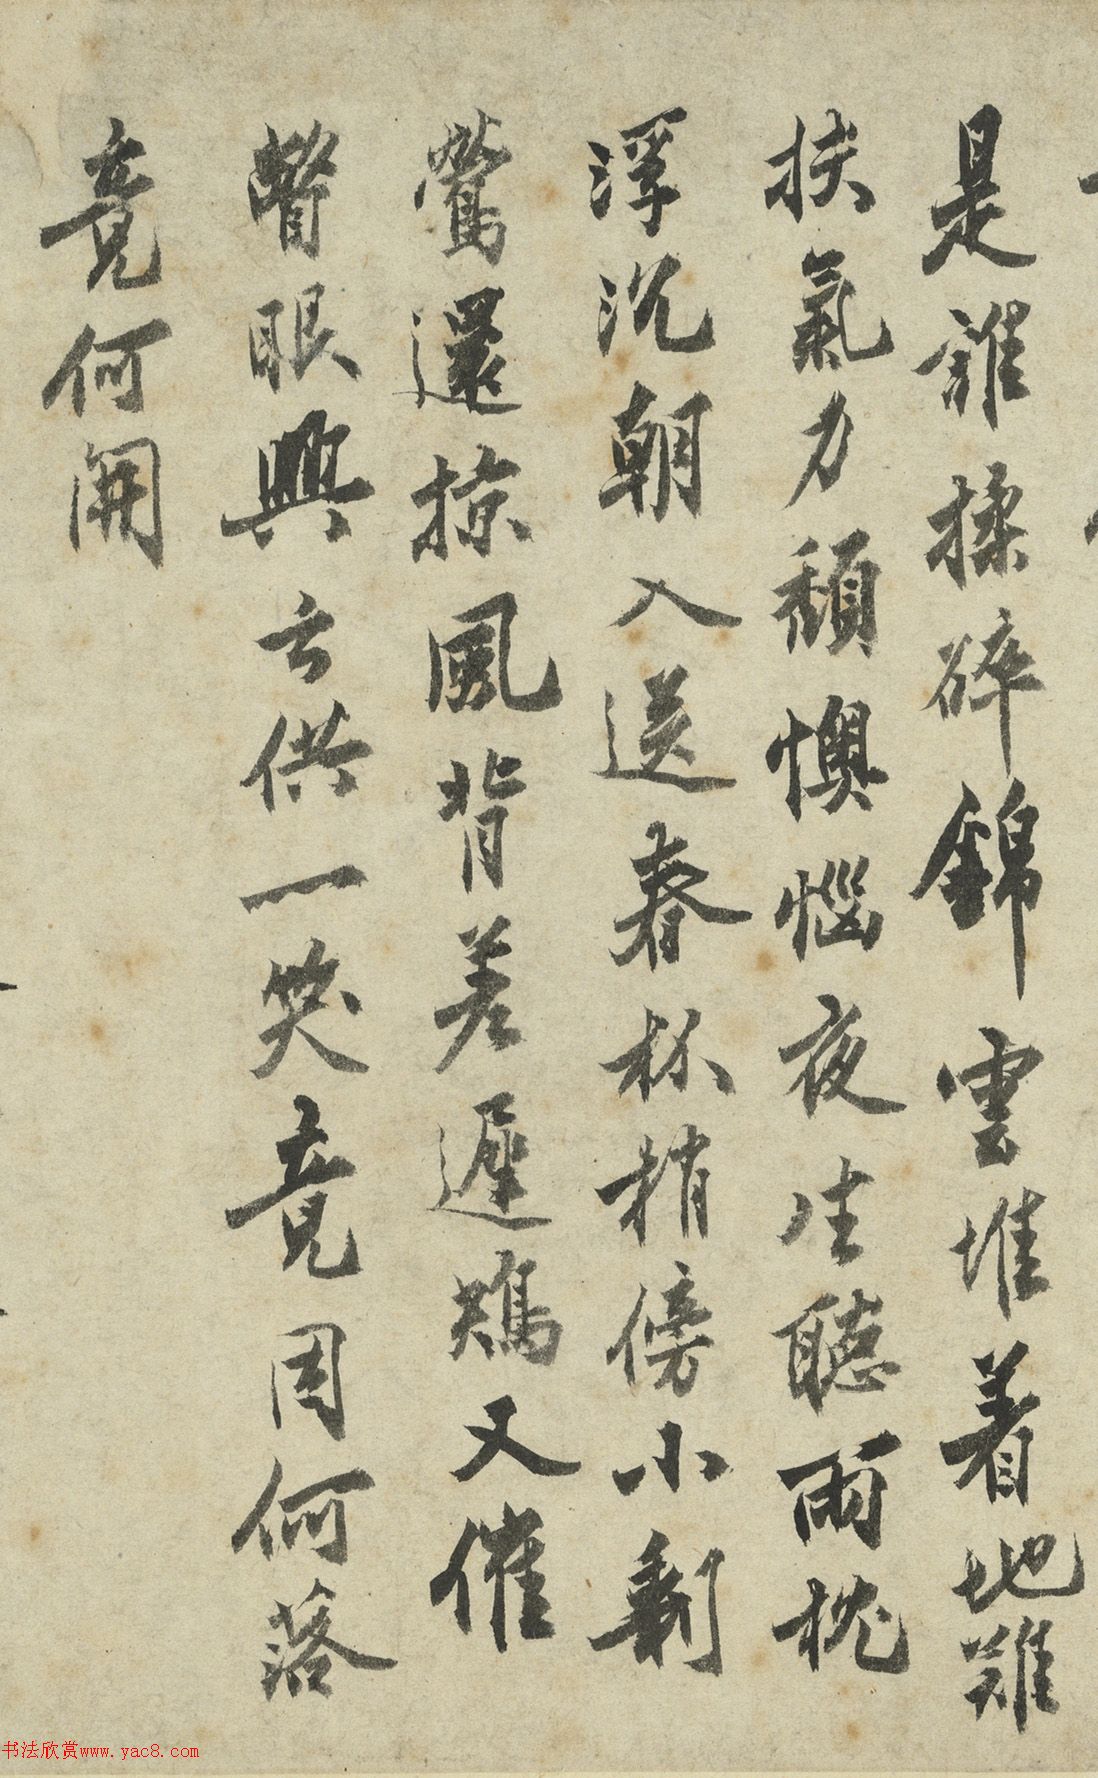 是誰揉碎錦雲堆着地難
扶氣力頹懊惱夜生聽雨枕
浮沉朝入送春杯梢傍小剩
鶯還掠風背差遲鴂又催
瞥眼興亡供一笑竟因何落
竟何開
书法欣赏www.yac8.com